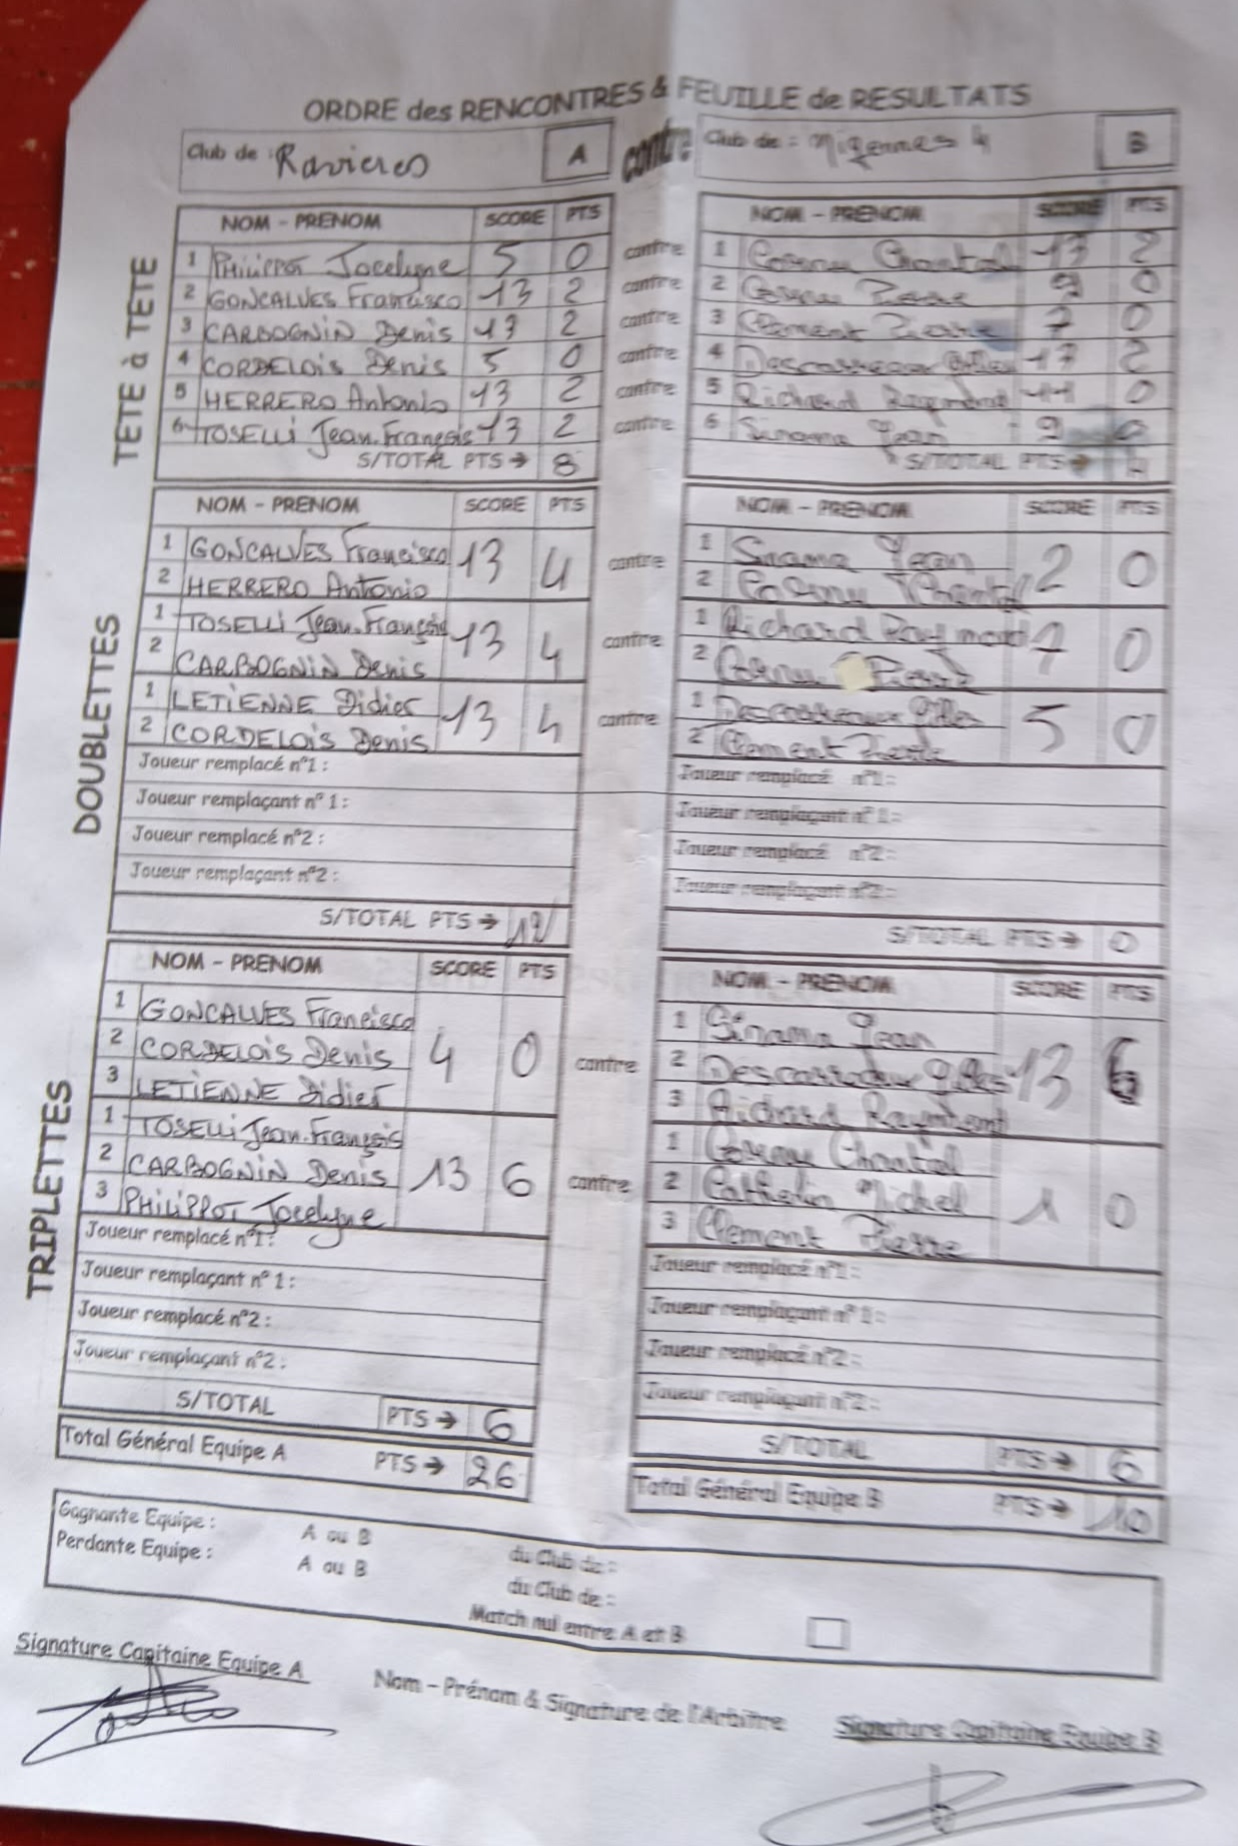 ORDRE des RENCONTRES & FEUILLE de RESULTATS
Club de : Ravieres A contre Club de : Migennes 4 B
TETE à TETE
NOM - PRENOM SCORE PTS NOM - PRENOM SCORE PTS
1 PHILIPPOT Jocelyne 5 0 contre 1 Cornu Chantal 13 2
2 GONCALVES Francisco 13 2 contre 2 Cornu Pierre 9 0
3 CARBOGNIN Denis 13 2 contre 3 Clement Pierre 7 0
4 CORDELOIS Denis 5 0 contre 4 Gilles 13 2
5 HERRERO Antonio 13 2 contre 5 Richard Raymond 11 0
6 TOSELLI Jean.François 13 2 contre 6 Sinama Jean 9 0
S/TOTAL PTS → 8 S/TOTAL PTS → 4
DOUBLETTES
NOM - PRENOM SCORE PTS NOM - PRENOM SCORE PTS
1 GONCALVES Francisco 13 4 contre 1 Sinama Jean 2 0
2 HERRERO Antonio 2 Cornu Chantal
1 TOSELLI Jean.François 13 4 contre 1 Richard Raymond 7 0
2 CARBOGNIN Denis 2 Cornu Pierre
1 LETIENNE Didier 13 4 contre 1 Gilles 5 0
2 CORDELOIS Denis 2 Clement Pierre
Joueur remplacé n°1 : Joueur remplacé n°1 :
Joueur remplaçant n° 1 : Joueur remplaçant n° 1 :
Joueur remplacé n°2 : Joueur remplacé n°2 :
Joueur remplaçant n°2 : Joueur remplaçant n°2 :
S/TOTAL PTS → 12 S/TOTAL PTS → 0
TRIPLETTES
NOM - PRENOM SCORE PTS NOM - PRENOM SCORE PTS
1 GONCALVES Francisco 1 Sinama Jean
2 CORDELOIS Denis 4 0 contre 2 Gilles 13 6
3 LETIENNE Didier 3 Richard Raymond
1 TOSELLI Jean.François 1 Cornu Chantal
2 CARBOGNIN Denis 13 6 contre 2 Catherin Michel 1 0
3 PHILIPPOT Jocelyne 3 Clement Pierre
Joueur remplacé n°1 : Joueur remplacé n°1 :
Joueur remplaçant n° 1 : Joueur remplaçant n° 1 :
Joueur remplacé n°2 : Joueur remplacé n°2 :
Joueur remplaçant n°2 : Joueur remplaçant n°2 :
S/TOTAL PTS → 6 S/TOTAL PTS → 6
Total Général Equipe A PTS → 26 Total Général Equipe B PTS → 10
Gagnante Equipe : A ou B du Club de :
Perdante Equipe : A ou B du Club de :
Match nul entre A et B
Signature Capitaine Equipe A Nom - Prénom & Signature de l'Arbitre Signature Capitaine Equipe B